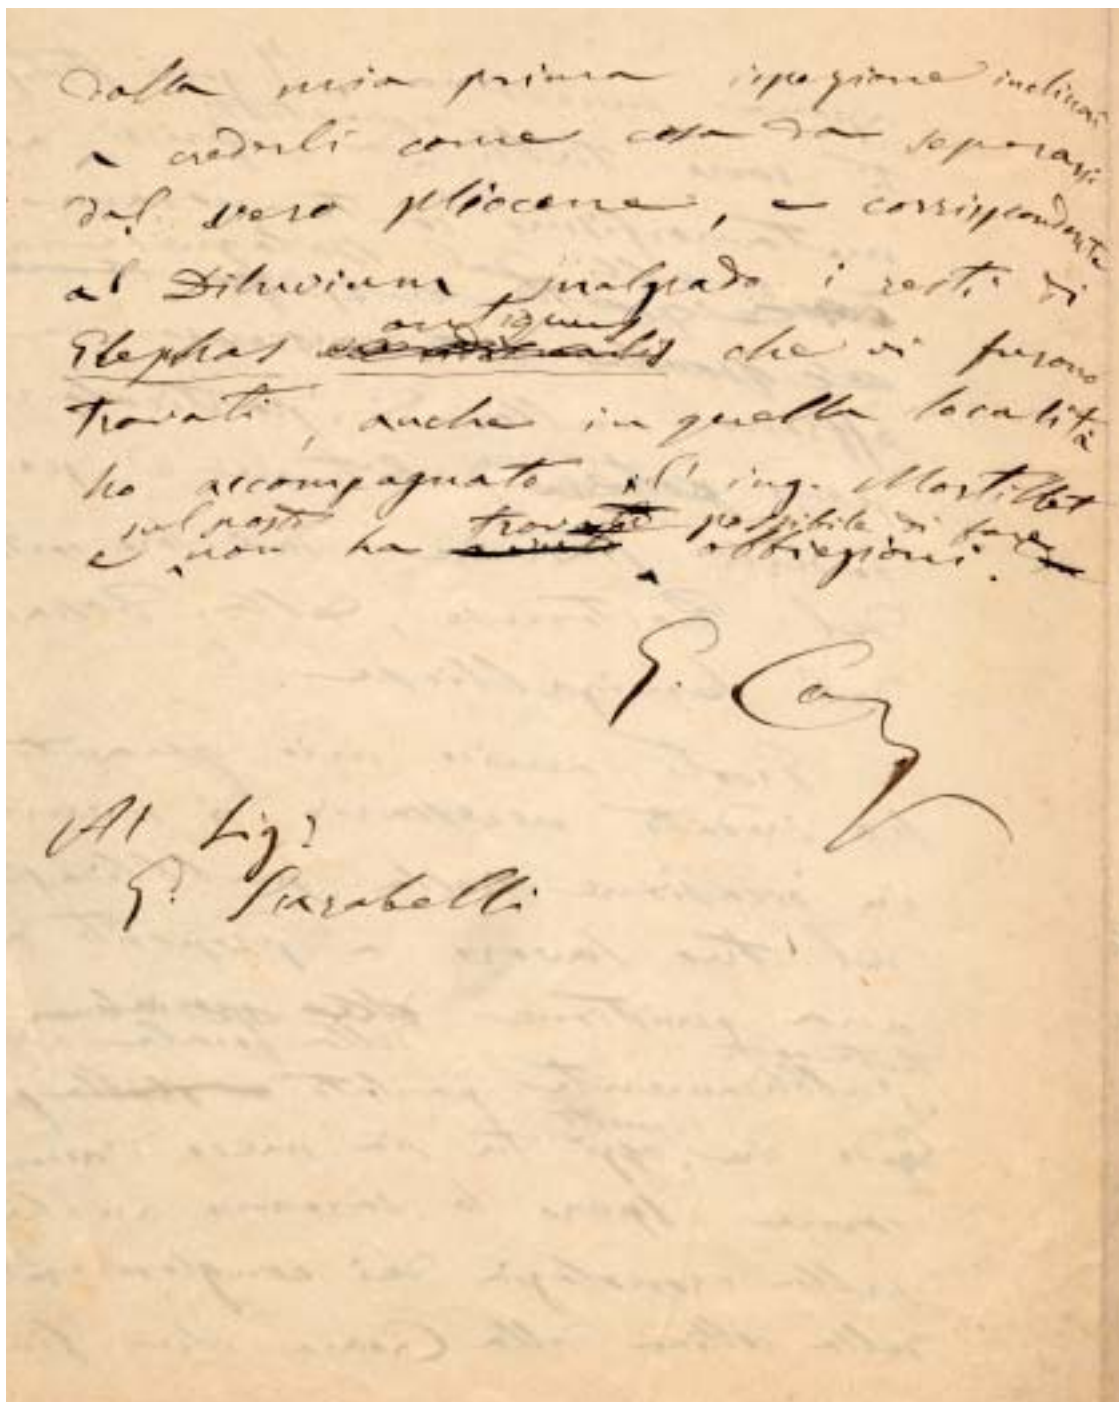 dalla mia prima ispezione inclinai
a crederli come cosa da separarsi
dal vero pliocene, e corrispondente
al Diluvium malgrado i resti di
antiquus
Elephas meridionalis che vi furono
trovati, anche in quella località
ho accompagnato l' ing. Mortillet
sul posto trovato possibile di fare
e non ha obbiezioni.
G. Ca
Al Sigr
G. Scarabelli